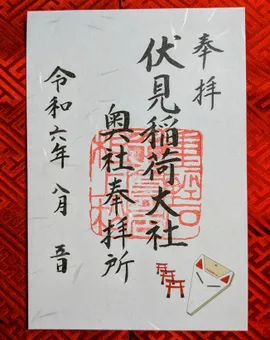 奉拝
伏見稲荷大社
奥社奉拝所
令和六年 八月 五日